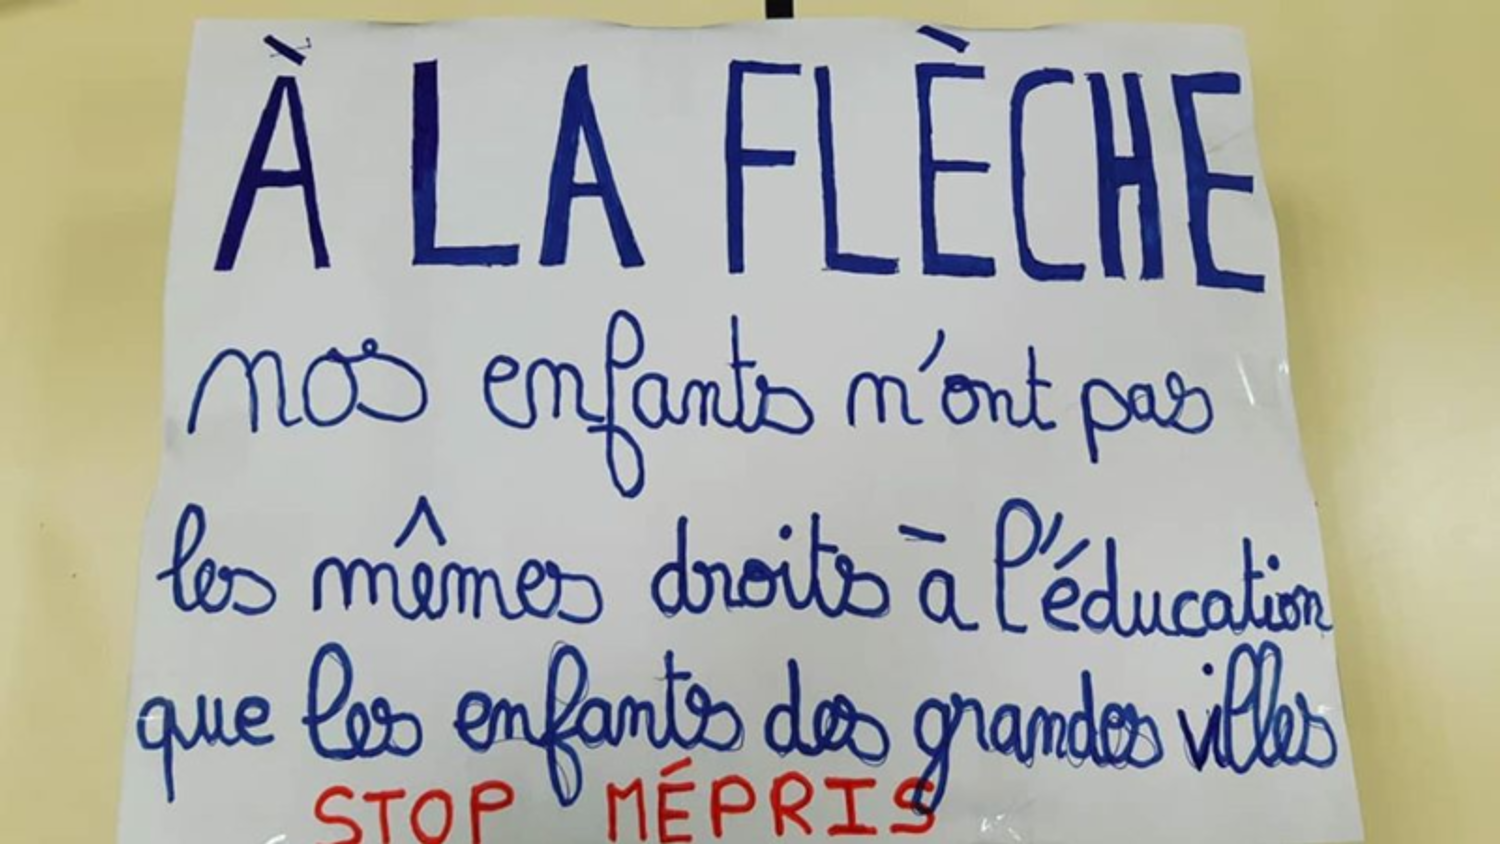 À LA FLÈCHE
nos enfants n'ont pas
les mêmes droits à l'éducation
que les enfants des grandes villes
STOP MÉPRIS